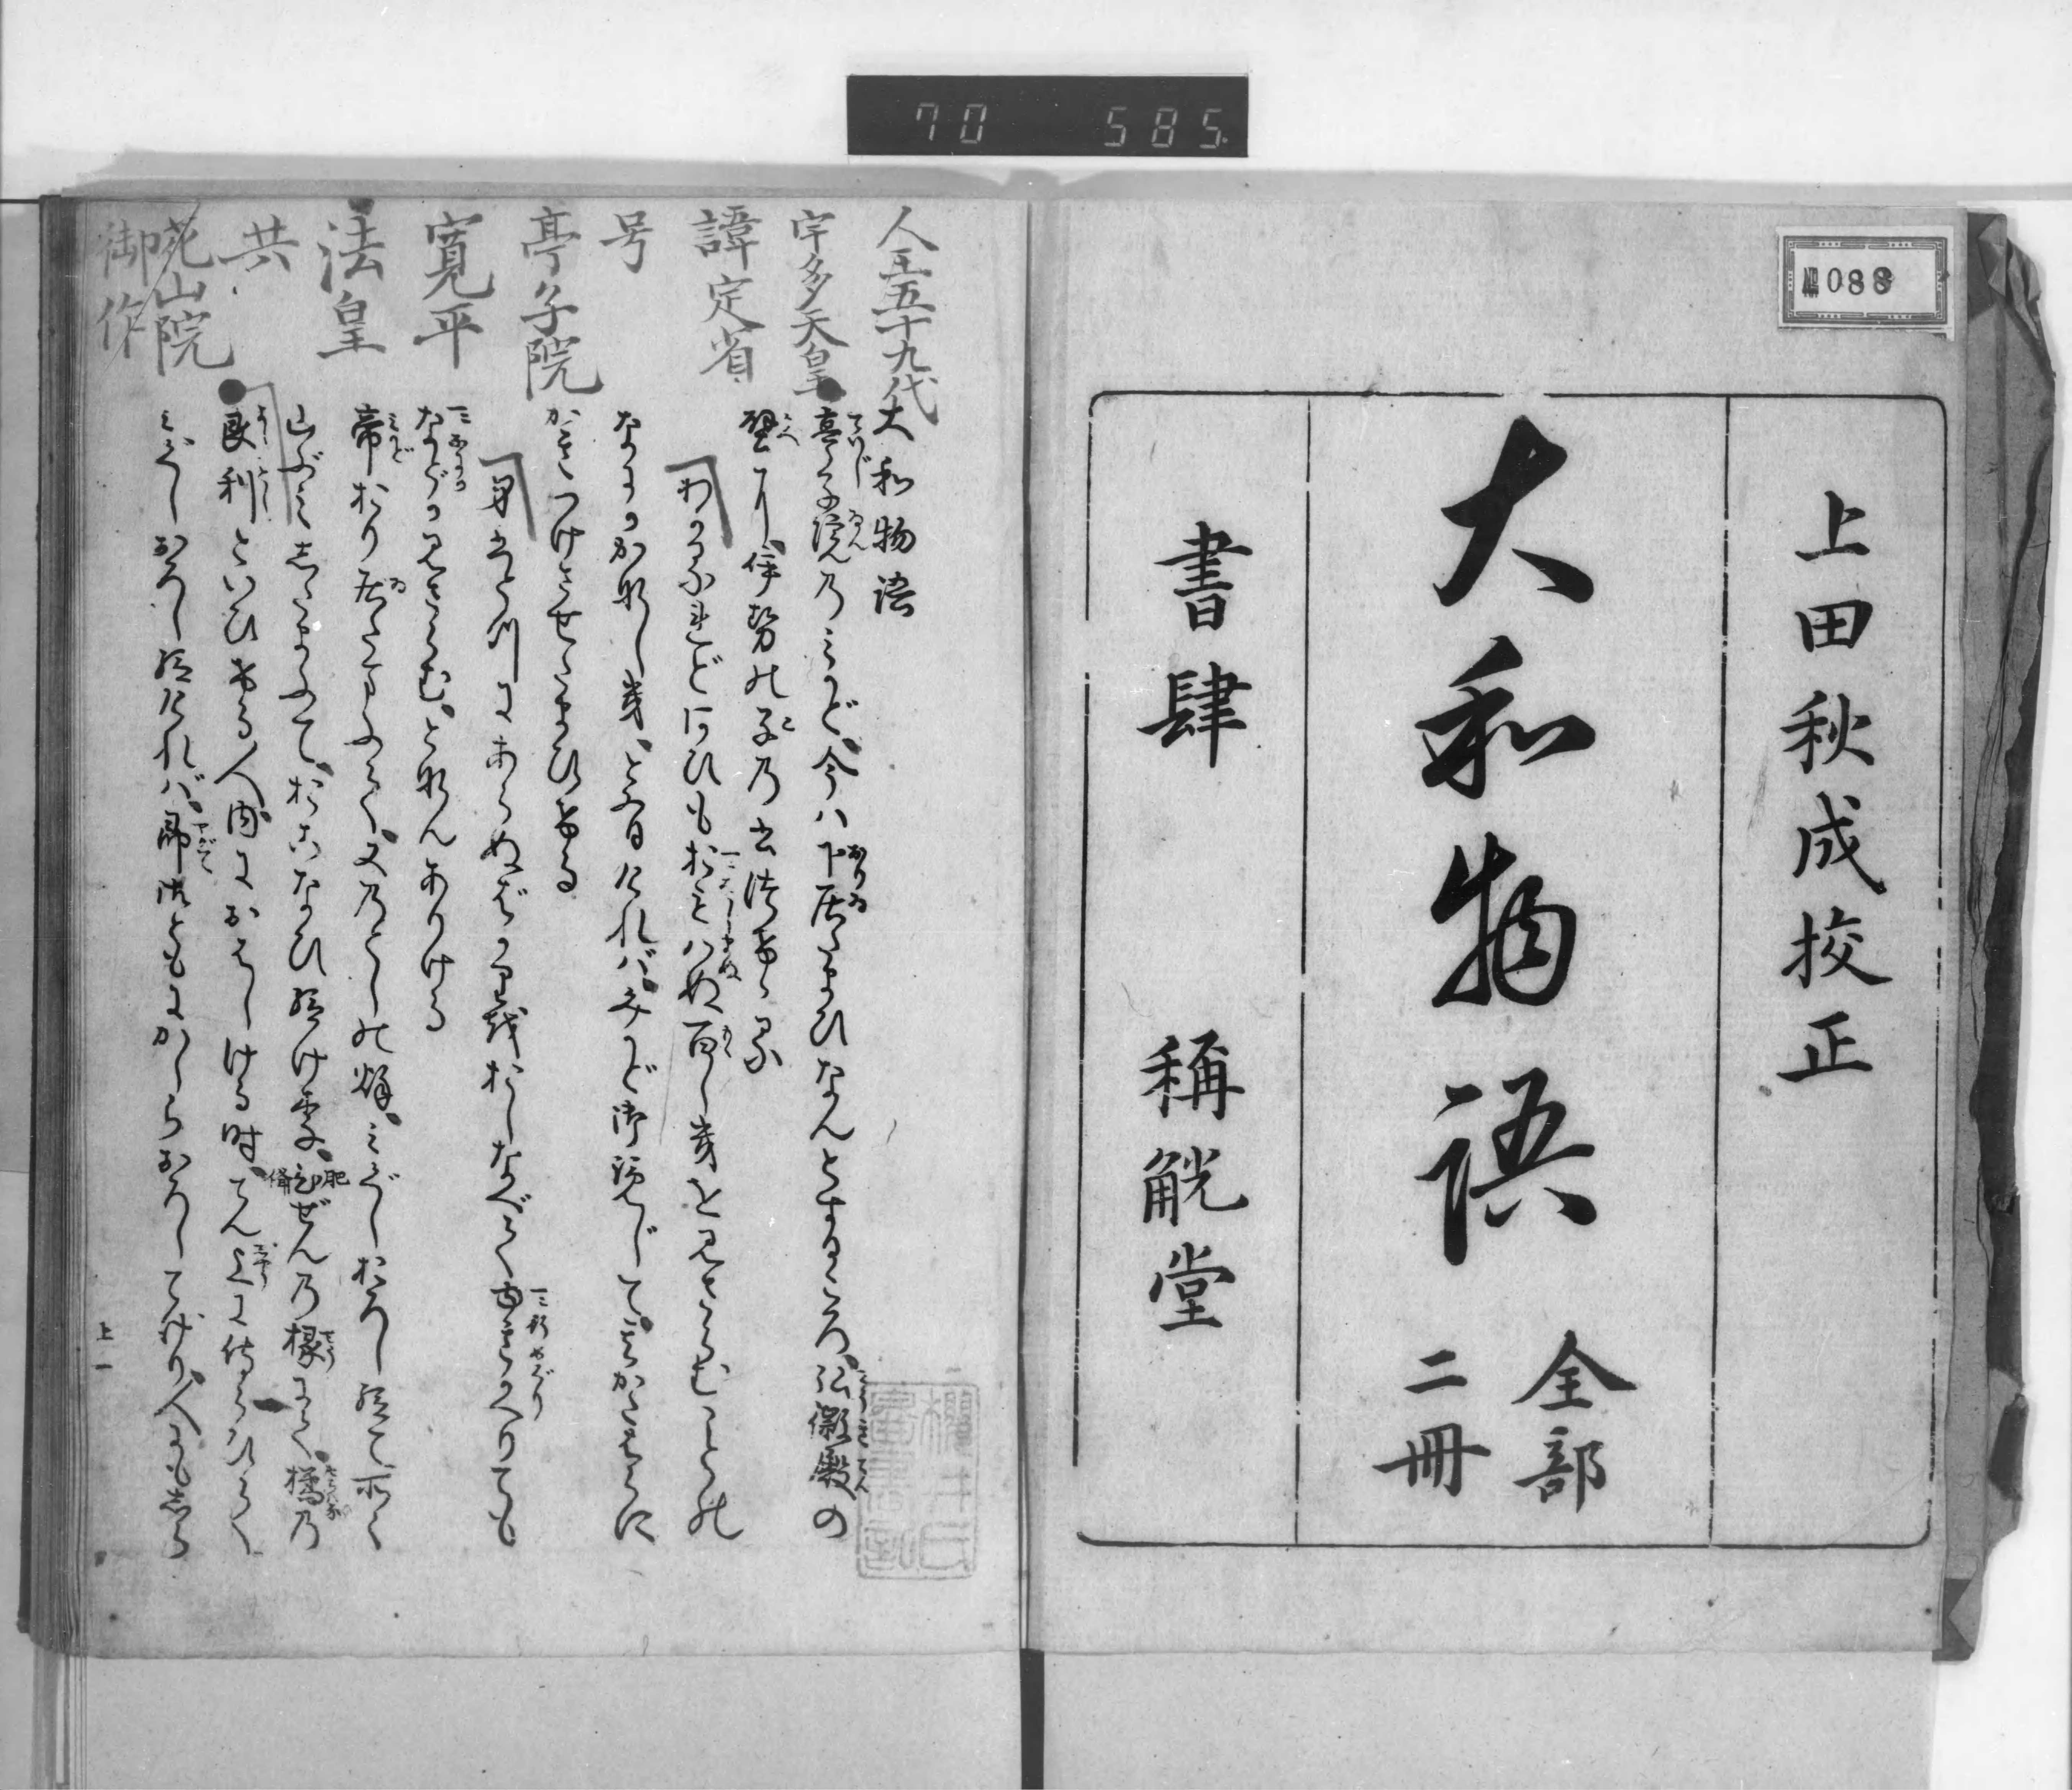 70 585
№088
上田秋成挍正
大和物語
全部
二冊
書肆 稱觥堂
人王五十九代
宇多天皇
諱定省
号
亭子院
寛平
法皇
共
花山院
御作
大和物語
亭子院乃みかど、今ハ下居たまひなんとするころ、弘徽殿の
壁に、伊勢の子乃書つけける
わかるれどあひもおもハぬ百しきを見さらむことの
なにかかなしき、とありけれバ、みかど御覧じて、そのかたはらに
かきつけさせたまひける
身ひとつにあらぬばかりをおしなべてゆきかへりても
などか見ざらむ、となんありける
帝おり居たまふて、又のとしの秋、みぐしおろし給て所々
山ぶみしたまふて、おこなひ給けり、ひぜん乃掾にて、橘乃
良利といひける人、内におはしける時、てん上に侍らひて
みぐしおろし給けれバ、やがて御ともにかしらおろしてけり、人にもしら
上一